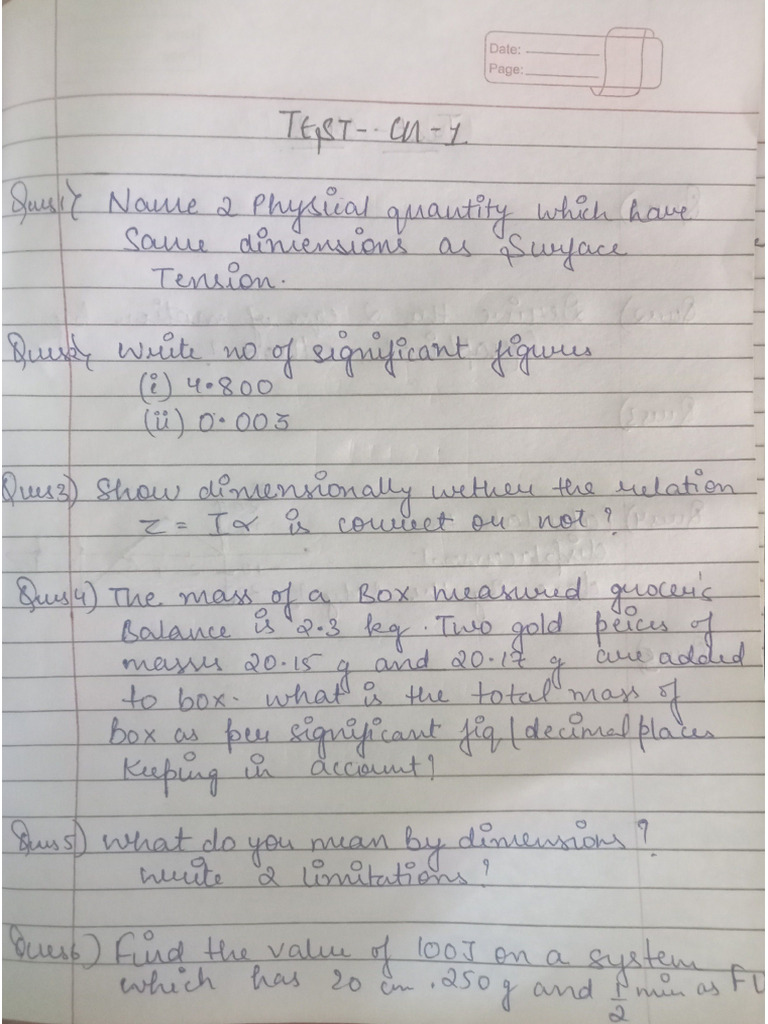 Date:
Page:
TEST - CH - 1
Ques 1) Name 2 Physical quantity which have
same dimensions as Surface
Tension.
Ques 2) Write no of significant figures
(i) 4.800
(ii) 0.003
Ques 3) Show dimensionally wether the relation
τ = Iα is correct or not?
Ques 4) The mass of a Box measured grocer's
Balance is 2.3 kg. Two gold peices of
masses 20.15 g and 20.17 g are added
to box. what is the total mass of
box as per significant fig / decimal places
Keeping in account?
Ques 5) What do you mean by dimensions?
write 2 limitations?
Ques 6) Find the value of 100J on a system
which has 20 cm, 250 g and 1/2 min as FU